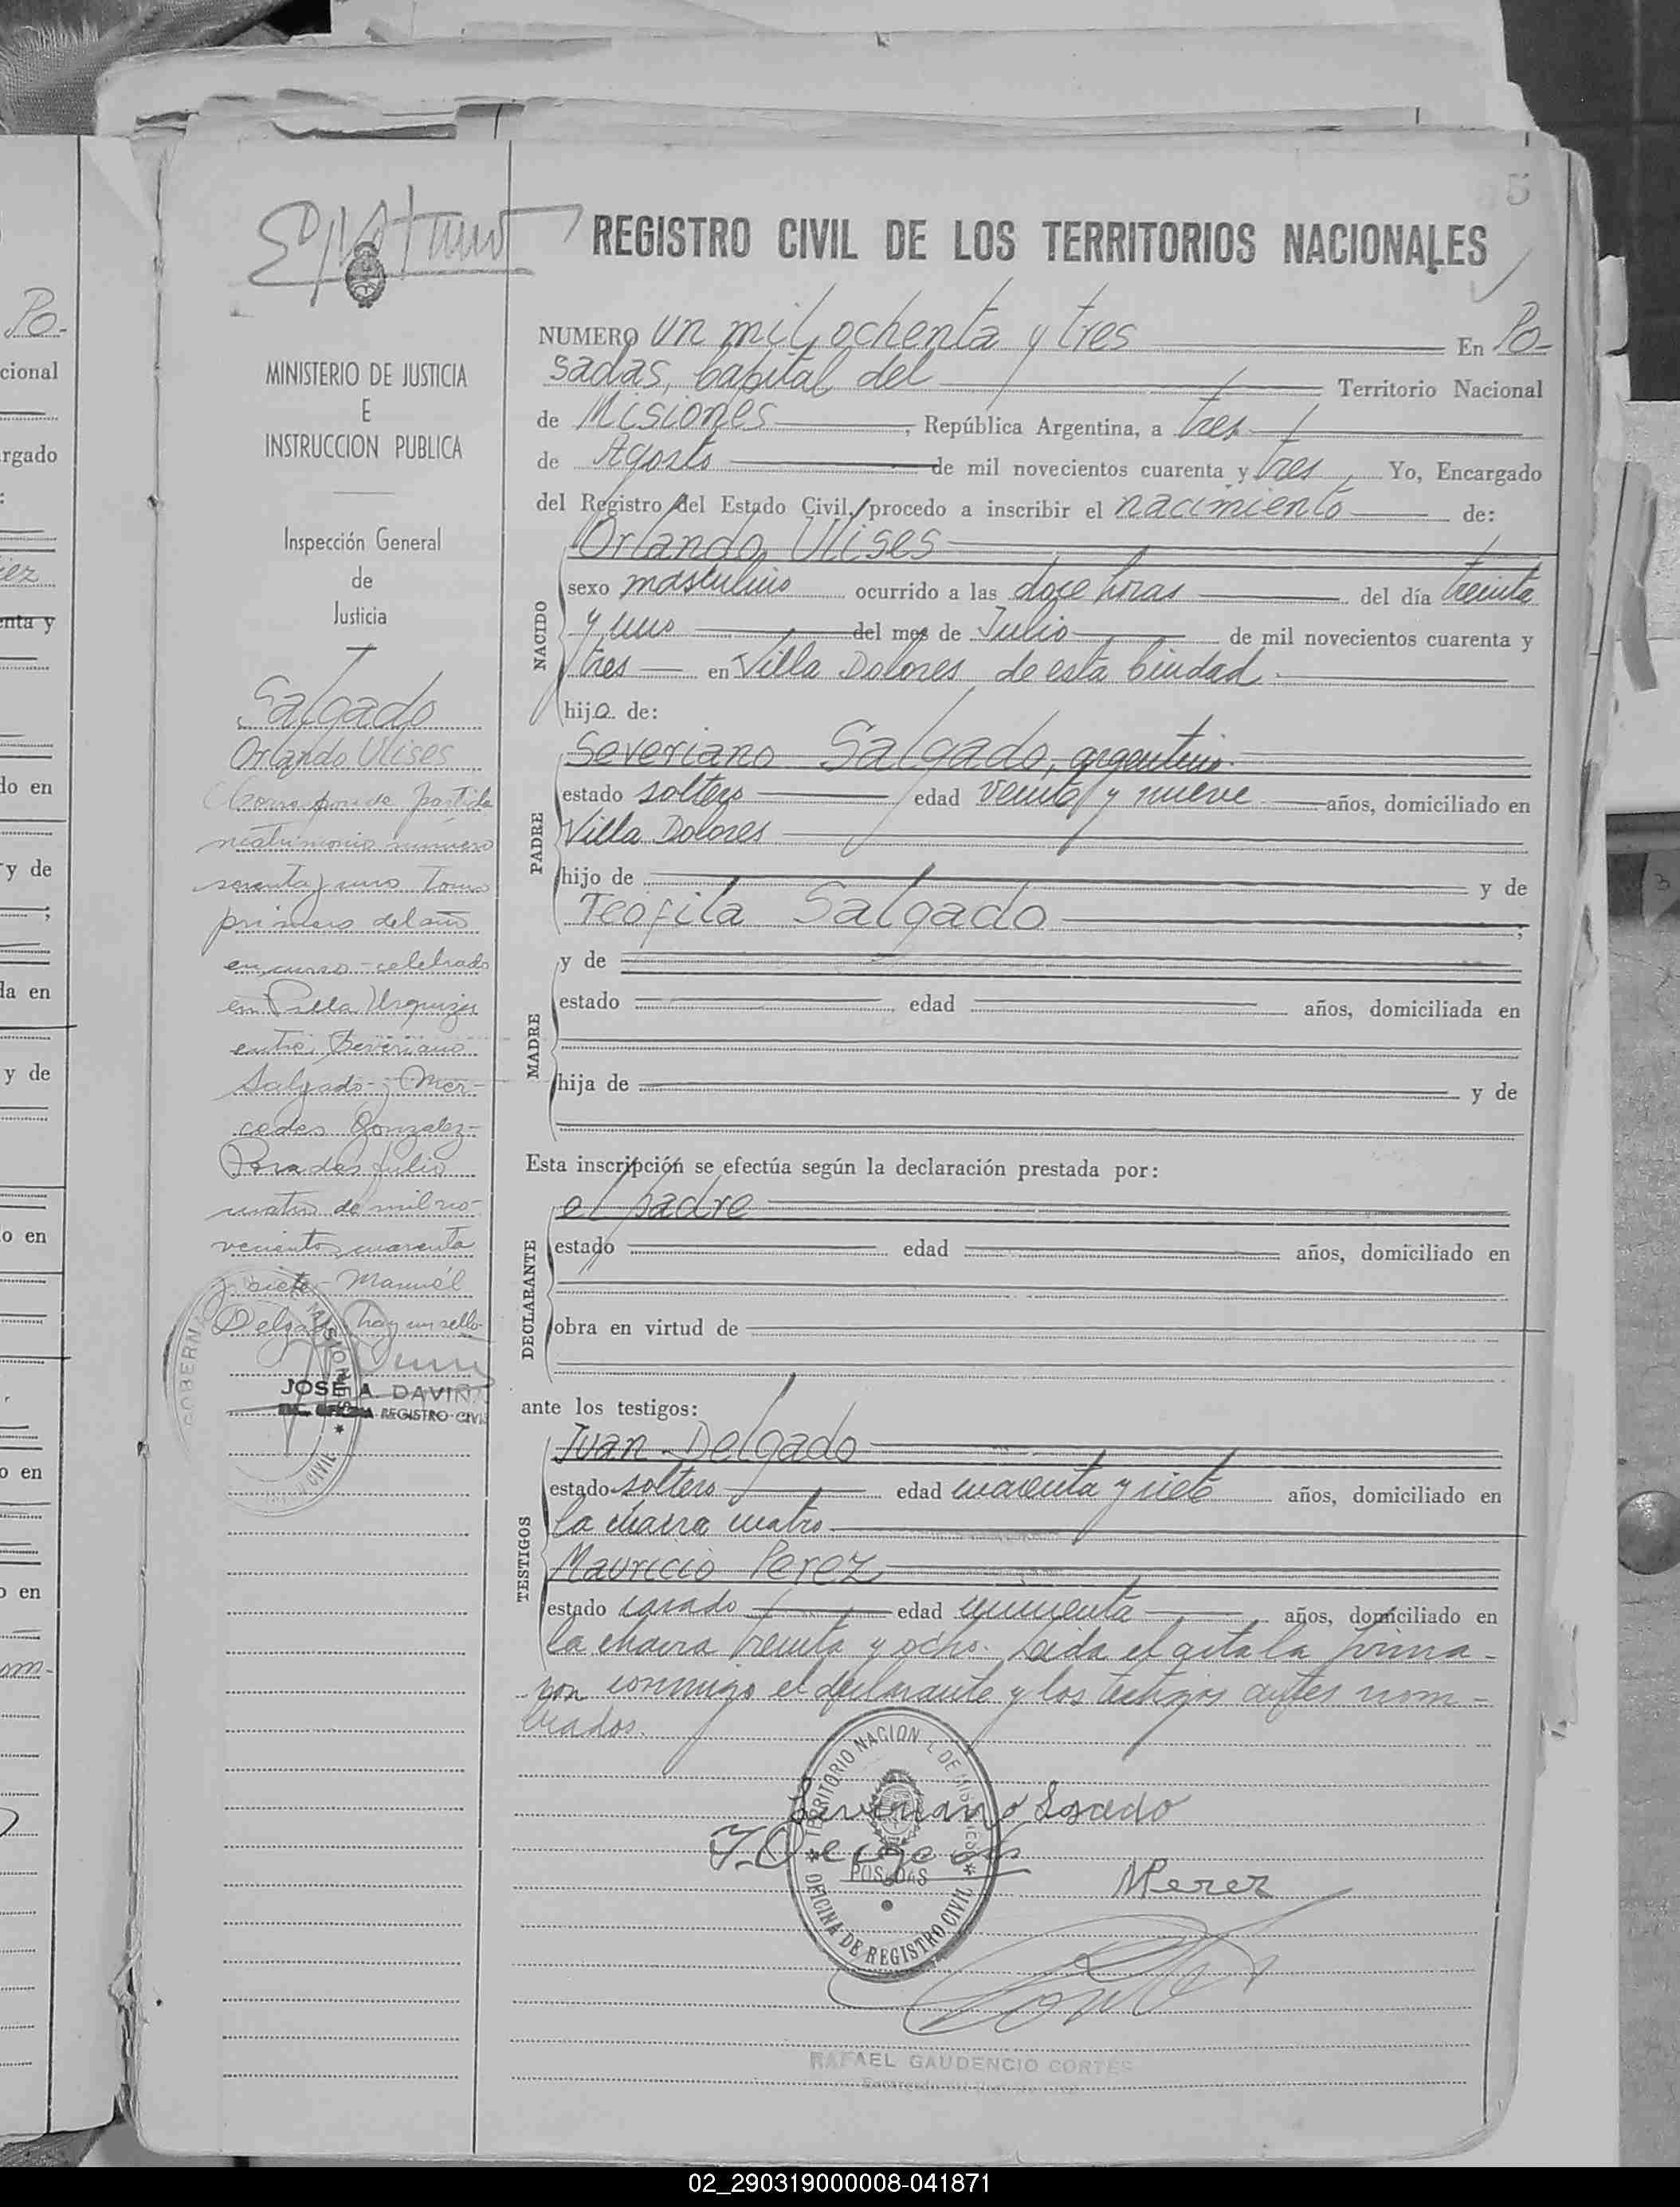 5
REGISTRO CIVIL DE LOS TERRITORIOS NACIONALES
MINISTERIO DE JUSTICIA
E
INSTRUCCION PUBLICA
Inspección General
de
Justicia
Salgado
Orlando Ulises
Corresponde partida
matrimonio numero
y uno tomo
primero del año
en curso - celebrado
en Villa Urquiza
entre Severiano
Salgado y Mer-
cedes Gonzalez-
Posadas Julio
cuatro de mil no-
vecientos cuarenta
y siete - Manuel
Delgado hay un sello
JOSE A. DAVIÑA
REGISTRO CIVIL
NUMERO un mil ochenta y tres En Po-
sadas, Capital del Territorio Nacional
de Misiones, República Argentina, a tres
de Agosto de mil novecientos cuarenta y tres Yo, Encargado
del Registro del Estado Civil, procedo a inscribir el nacimiento de:
NACIDO
Orlando Ulises
sexo masculino ocurrido a las doce horas del día treinta
y uno del mes de Julio de mil novecientos cuarenta y
tres en Villa Dolores de esta Ciudad.
hijo de:
PADRE
Severiano Salgado, argentino
estado soltero edad veinte y nueve años, domiciliado en
Villa Dolores
hijo de y de
Teófila Salgado ;
MADRE
y de
estado edad años, domiciliada en
hija de y de
Esta inscripción se efectúa según la declaración prestada por:
DECLARANTE
el padre
estado edad años, domiciliado en
obra en virtud de
ante los testigos:
TESTIGOS
Juan Delgado
estado soltero edad cuarenta y siete años, domiciliado en
la chacra cuatro
Mauricio Perez
estado casado edad cincuenta años, domiciliado en
la chacra treinta y ocho. Leida el acta la firma-
ron conmigo el declarante y los testigos antes nom-
brados.
TERRITORIO NACIONAL DE MISIONES
POSADAS
OFICINA DE REGISTRO CIVIL
Severiano Sagado
J. Delgado
M Perez
RAFAEL GAUDENCIO CORTÉS
02_290319000008-041871